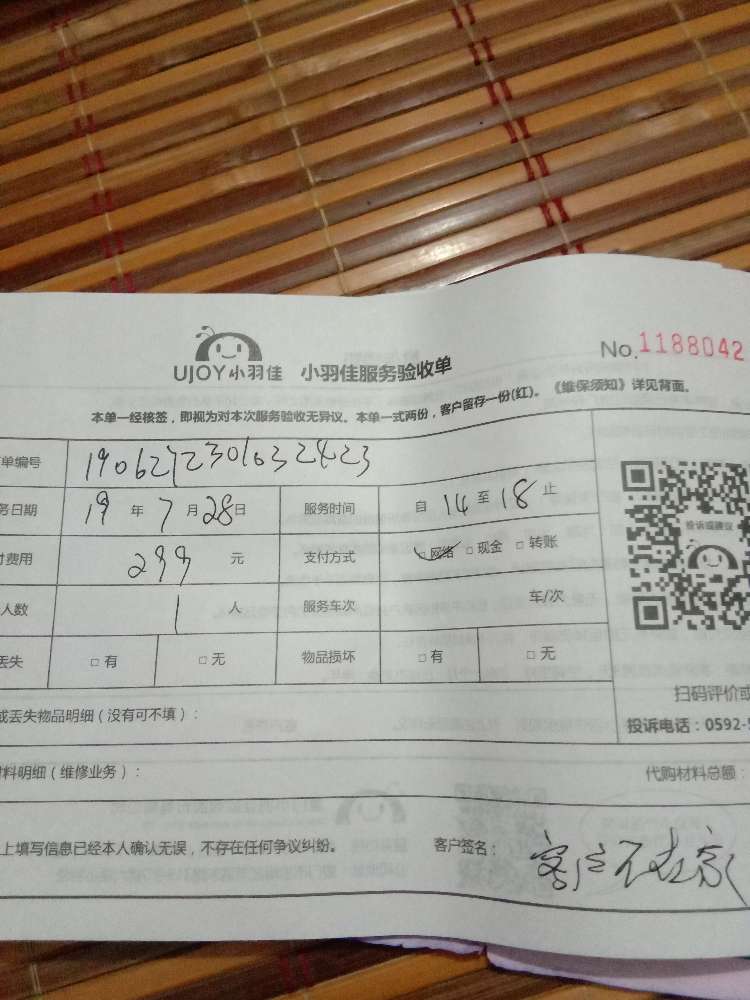 UJOY小羽佳 小羽佳服务验收单 No.1188042
本单一经核签，即视为对本次服务验收无异议。本单一式两份，客户留存一份(红)。《维保须知》详见背面。
单编号
务日期 19 年 7 月 28 日 服务时间 自 14 至 18 止
付费用 299 元 支付方式 网络 □现金 □转账
人数 1 人 服务车次 车/次
丢失 □有 □无 物品损坏 □有 □无
投诉或建议
扫码评价或
投诉电话：0592-
或丢失物品明细（没有可不填）：
材料明细（维修业务）： 代购材料总额：
上填写信息已经本人确认无误，不存在任何争议纠纷。 客户签名： 客户不在家